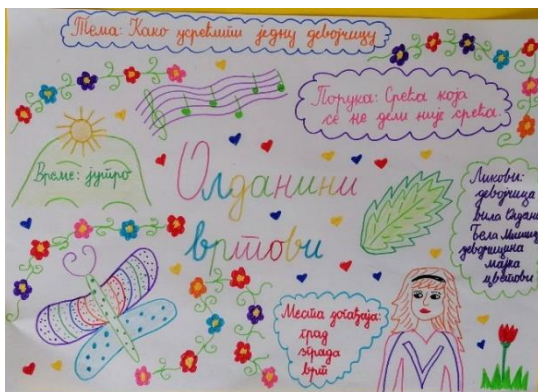 Тема: Како усрећити једну девојчицу
Порука: Срећа која
се не дели није срећа.
Време: јутро
Олданини
вртови
Ликови:
девојчица
вила Олдана
Бела Мишица
девојчицина
мајка
цветови
Места догађаја:
град
зграда
врт